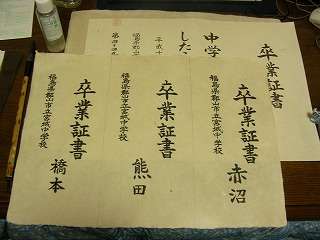 卒業証書
赤沼
福島県郡山市立宮城中学校
卒業証書
熊田
福島県郡山市立宮城中学校
卒業証書
橋本
福島県郡山市立宮城中学校
卒業証書
中学
した
平成十